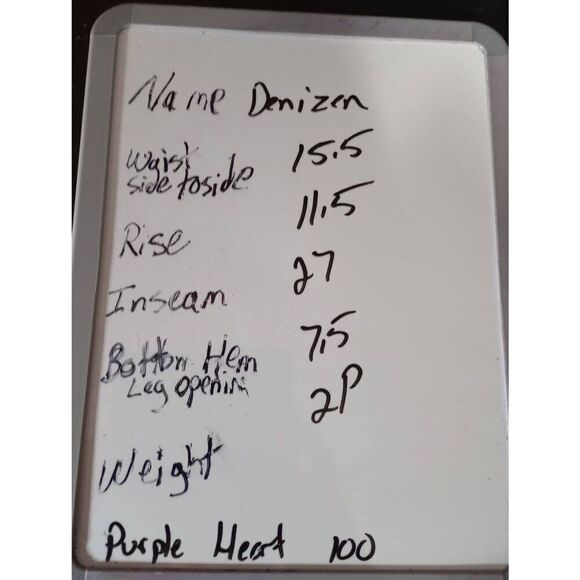 Name Denizen
Waist 15.5
side to side
11.5
Rise
27
Inseam
7.5
Bottom Hem
Leg opening
2P
Weight
Purple Heart 100